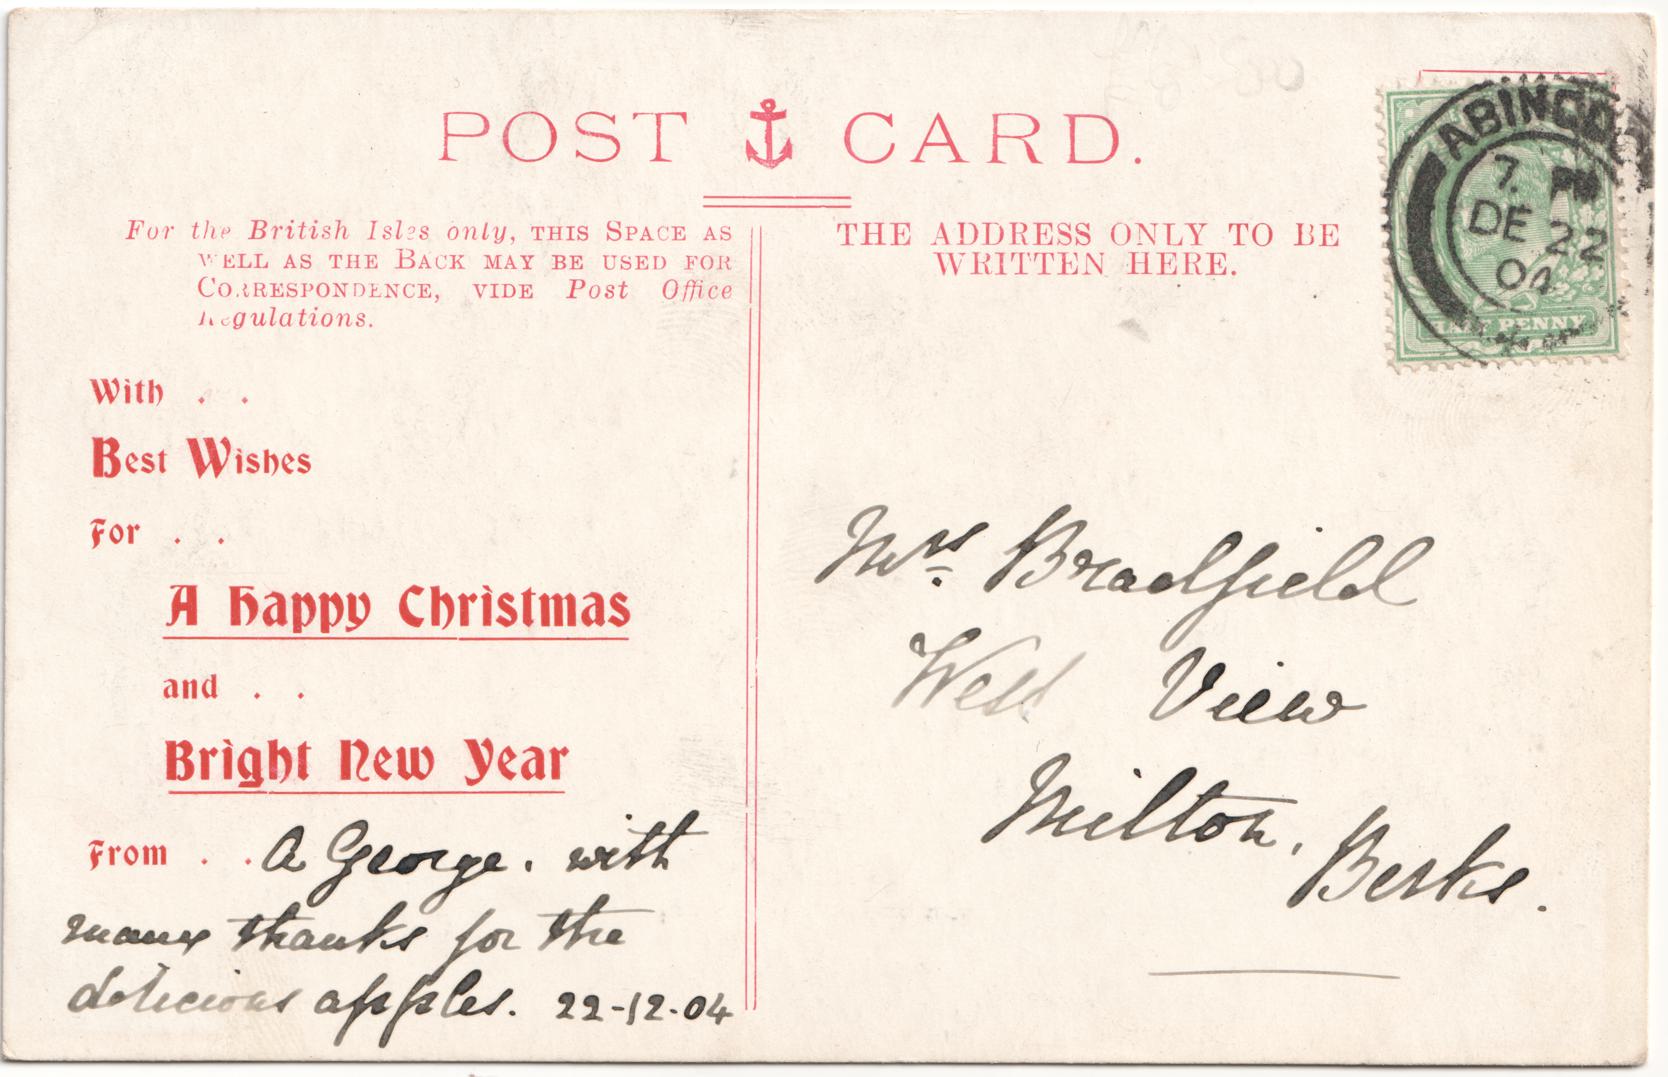 POST CARD.
For the British Isles only, THIS SPACE AS
WELL AS THE BACK MAY BE USED FOR
CORRESPONDENCE, VIDE Post Office
Regulations.
With . .
Best Wishes
For . .
A Happy Christmas
and . .
Bright New Year
From . . A George. with
many thanks for the
delicious apples. 22-12-04
THE ADDRESS ONLY TO BE
WRITTEN HERE.
ABINGDO
7. PM
DE 22
04
HALF PENNY
Mrs Bradfield
West View
Milton,
Berks.